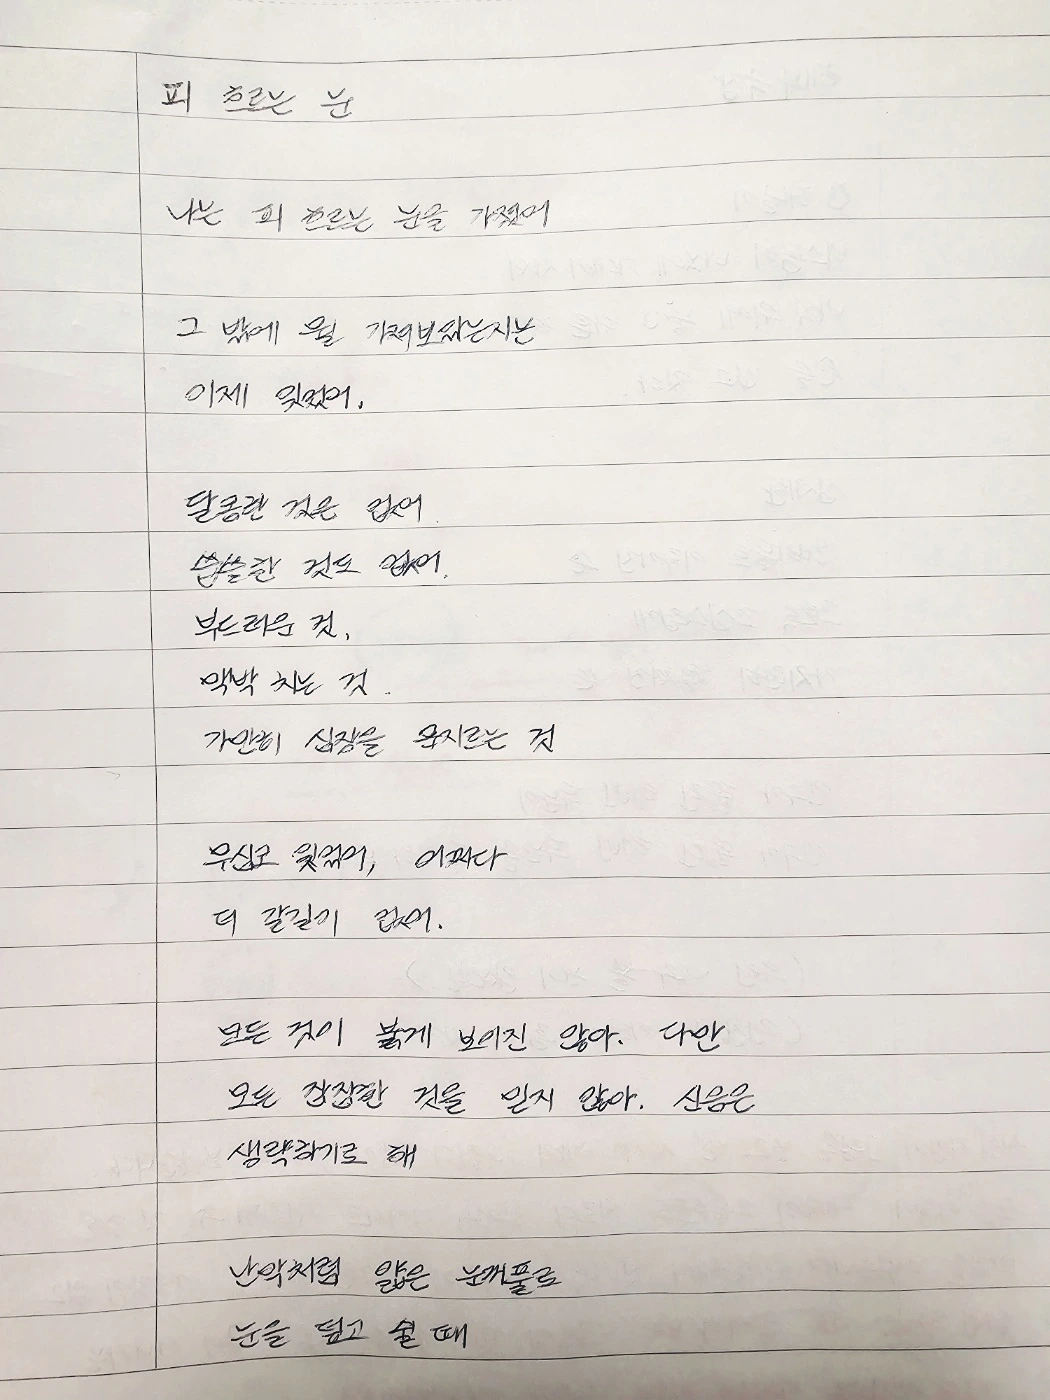 피 흐르는 눈
나는 피 흐르는 눈을 가졌어
그 밖에 뭘 가져보았는지는
이제 잊었어.
달콤한 것은 없어.
씁쓸한 것도 없어.
부드러운 것,
맥박 치는 것.
가만히 심장을 문지르는 것
무심코 잊었어, 어쩌다
더 갈길이 없어.
모든 것이 붉게 보이진 않아. 다만
모든 잠잠한 것을 믿지 않아. 신음은
생략하기로 해
난막처럼 얇은 눈꺼풀로
눈을 덮고 쉴 때